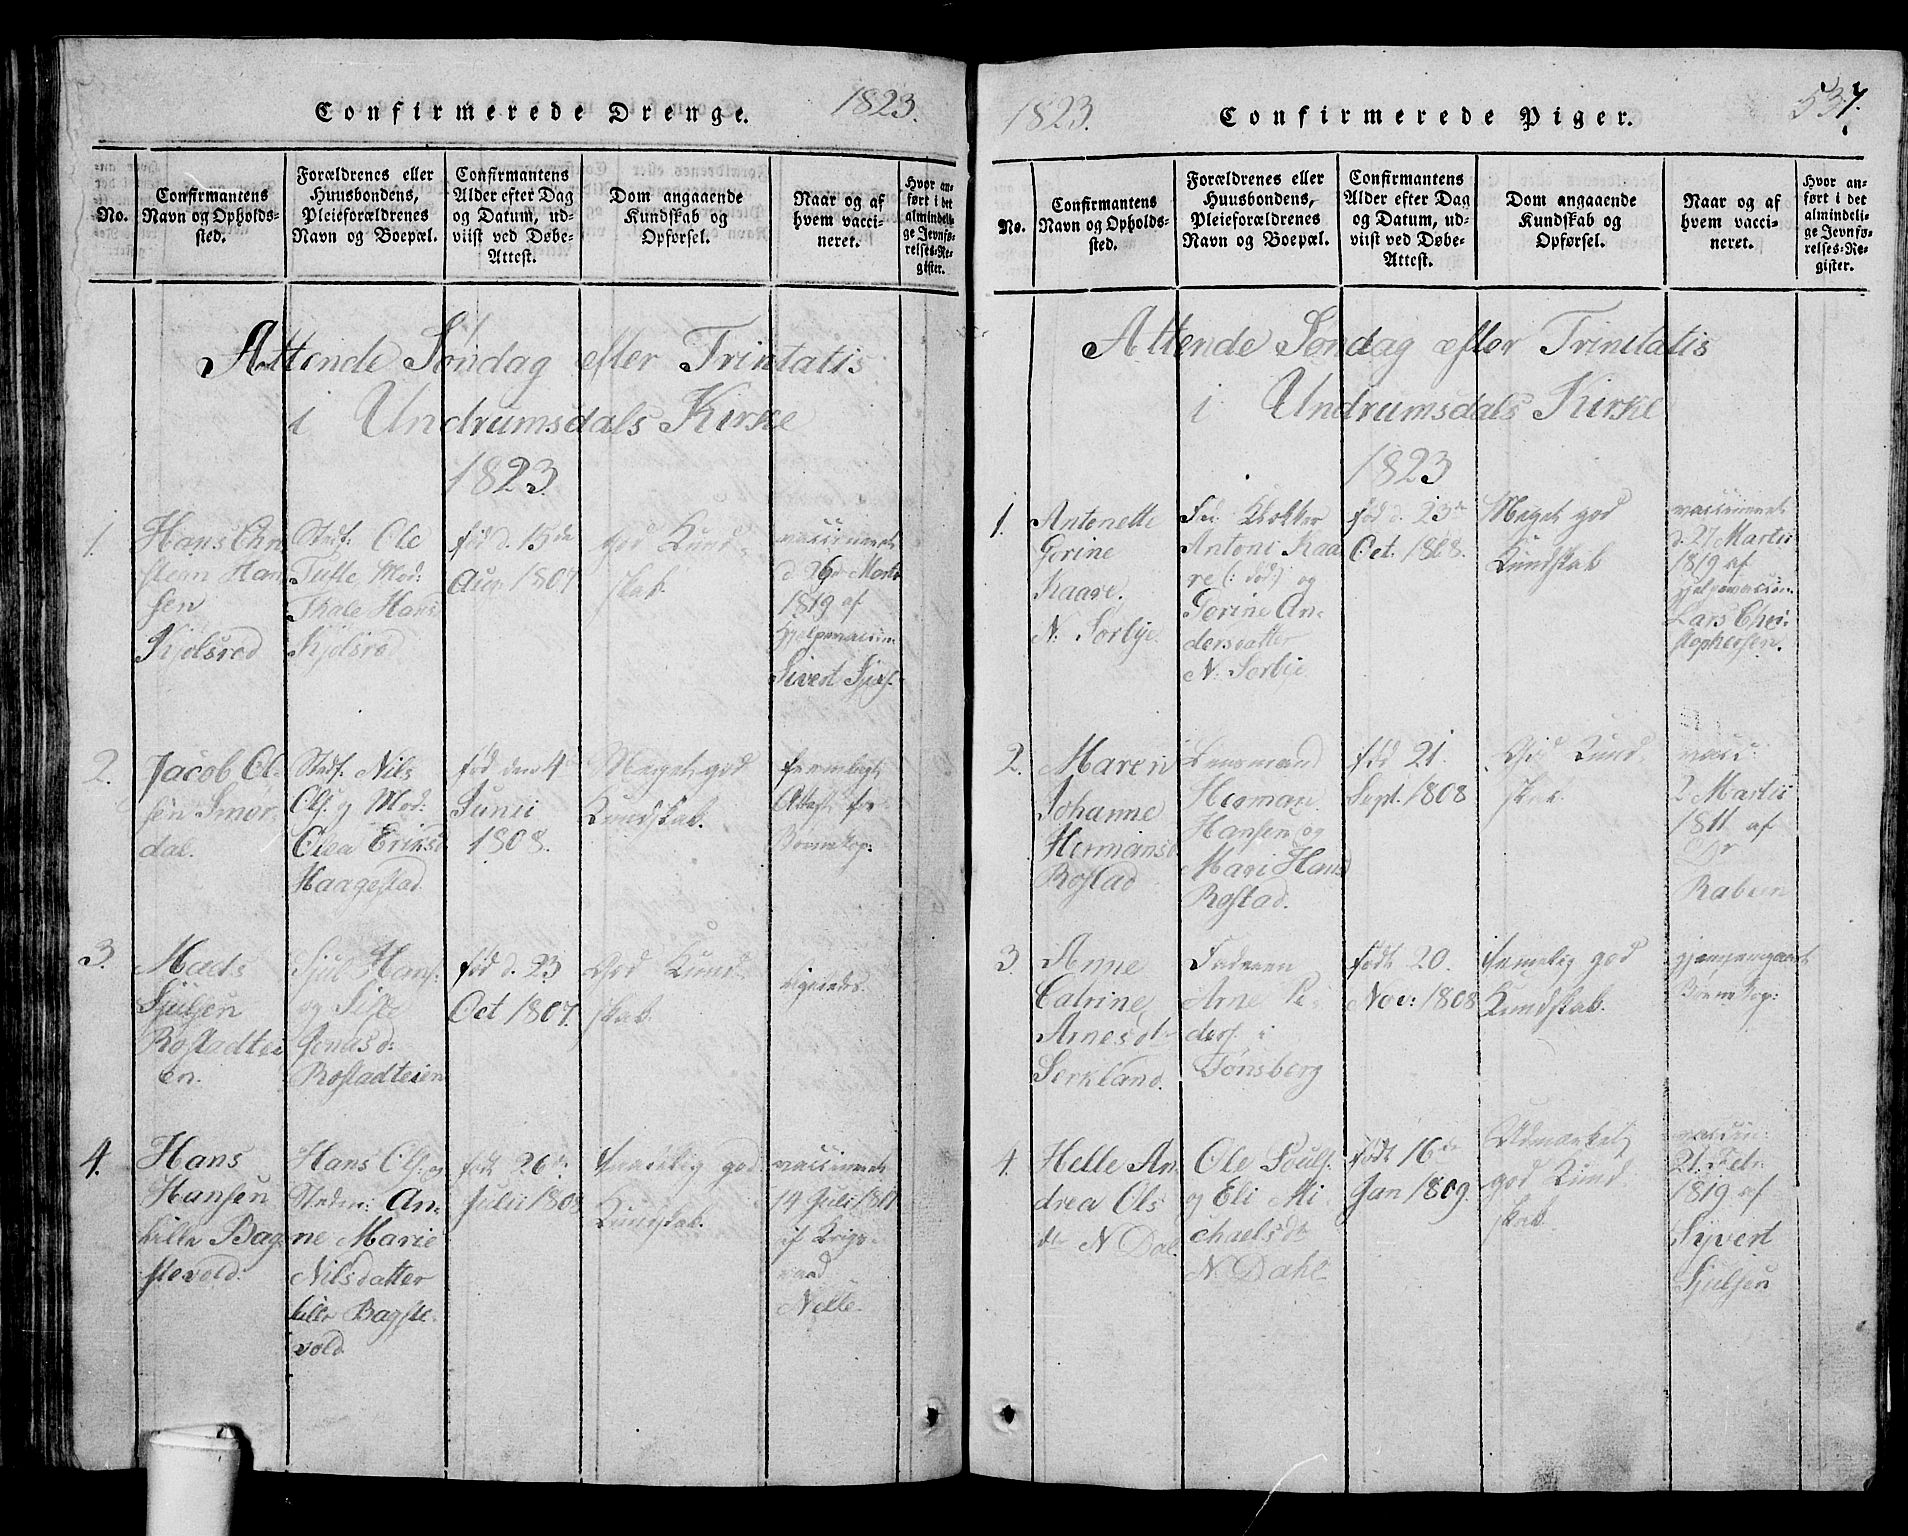 Confirmerede Drenge. 1823.
No.
Confirmantens
Navn og Opholds-
sted.
Forældrenes eller
Huusbondens,
Pleieforældrenes
Navn og Boepæl.
Confirmantens
Alder efter Dag
og Datum, ud-
viist ved Døbe-
Attest.
Dom angaaende
Kundskab og
Opførsel.
Naar og af
hvem vacci-
neret.
Hvor an-
ført i det
almindeli-
ge Jevnfø-
relses-Re-
gister.
Attende Søndag efter Trintatis
i Undrumsdals Kirke
1823.
1.
Hans Chri
stean Han
sen
Kjølsrød
Stedf. Ole
Tufte Mod:
Thale Hans
Kjølsrød
fød d. 15de
Aug 1807
god Kund-
skab.
vaccineret
d 26de Marti
1819 af
Hjelpevaccin
Sivert Sjuls.
2.
Jacob Ol-
sen Smør-
dal.
Stedf. Nils
Ols. og Mod:
Olea Eriksd
Haagestad
fød den 4de
Junii
1808.
Meget god
Kundskab.
fremlagt
Attest for
Bornekop:
3.
Mads
Sjulsen
Rostadtei
en.
Sjul Hans.
og Siste
Jonasd:
Rostadteien
fød d. 23
Oct 1807.
God Kund-
skab.
ligeledes
4.
Hans
Hansen
lille Bag-
stevold.
Hans Ols. og
Stedm: An-
ne Marie
Nilsdatter
lille Bagste-
vold
født 26de
Julii 1808
temmelig god
Kundskab.
vaccineret
14 Julii 1811
af
Nelle
1823. Confirmerede Piger. 537.
No.
Confirmantens
Navn og Opholds-
sted.
Forældrenes eller
Huusbondens,
Pleieforældrenes
Navn og Boepæl.
Confirmantens
Alder efter Dag
og Datum, ud-
viist ved Døbe-
Attest.
Dom angaaende
Kundskab og
Opførsel.
Naar og af
hvem vacci-
neret.
Hvor an-
ført i det
almindeli-
ge Jevnfø-
relses-Re-
gister.
Attende Søndag æfter Trinitatis
i Undrumsdals Kirke
1823
1.
Antonette
Gorine
Kaare.
N. Sørbye.
Fa: Klokker
Antoni Kaa
re (: død:) og
Gorine An-
dersdatter
N. Sørbye
fød d. 23de
Oct. 1808.
Meget god
Kundskab
vaccineret
d. 27 Martii
1819 af
hjelpevaccin.
Lars Chri-
stophersen.
2.
Maren
Johanne
Hermansd
Rostad
Lensmand
Herman
Hansen og
Mari Hansd
Rostad.
fød 21.
Sept. 1808
God Kund-
skab.
vacci:
2 Martii
1811 af
Dr
Raben
3.
Anne
Catrine
Arnesdt-
Serkland.
Faderen
Arne Pe-
ders. i
Tønsberg
født 20.
Nov: 1808
temelig god
Kundskab.
gjennemgaaet
BørneKop:
4.
Helle An
drea Ols
dr N Dal.
Ole Pouls.
og Eli Mi
chaelsdr
N. Dahl
født 16de
Jan 1809.
Udmærket
god Kund
skab
vaccin:
21. Feb:
1819 af
Syvert
Sjulsen